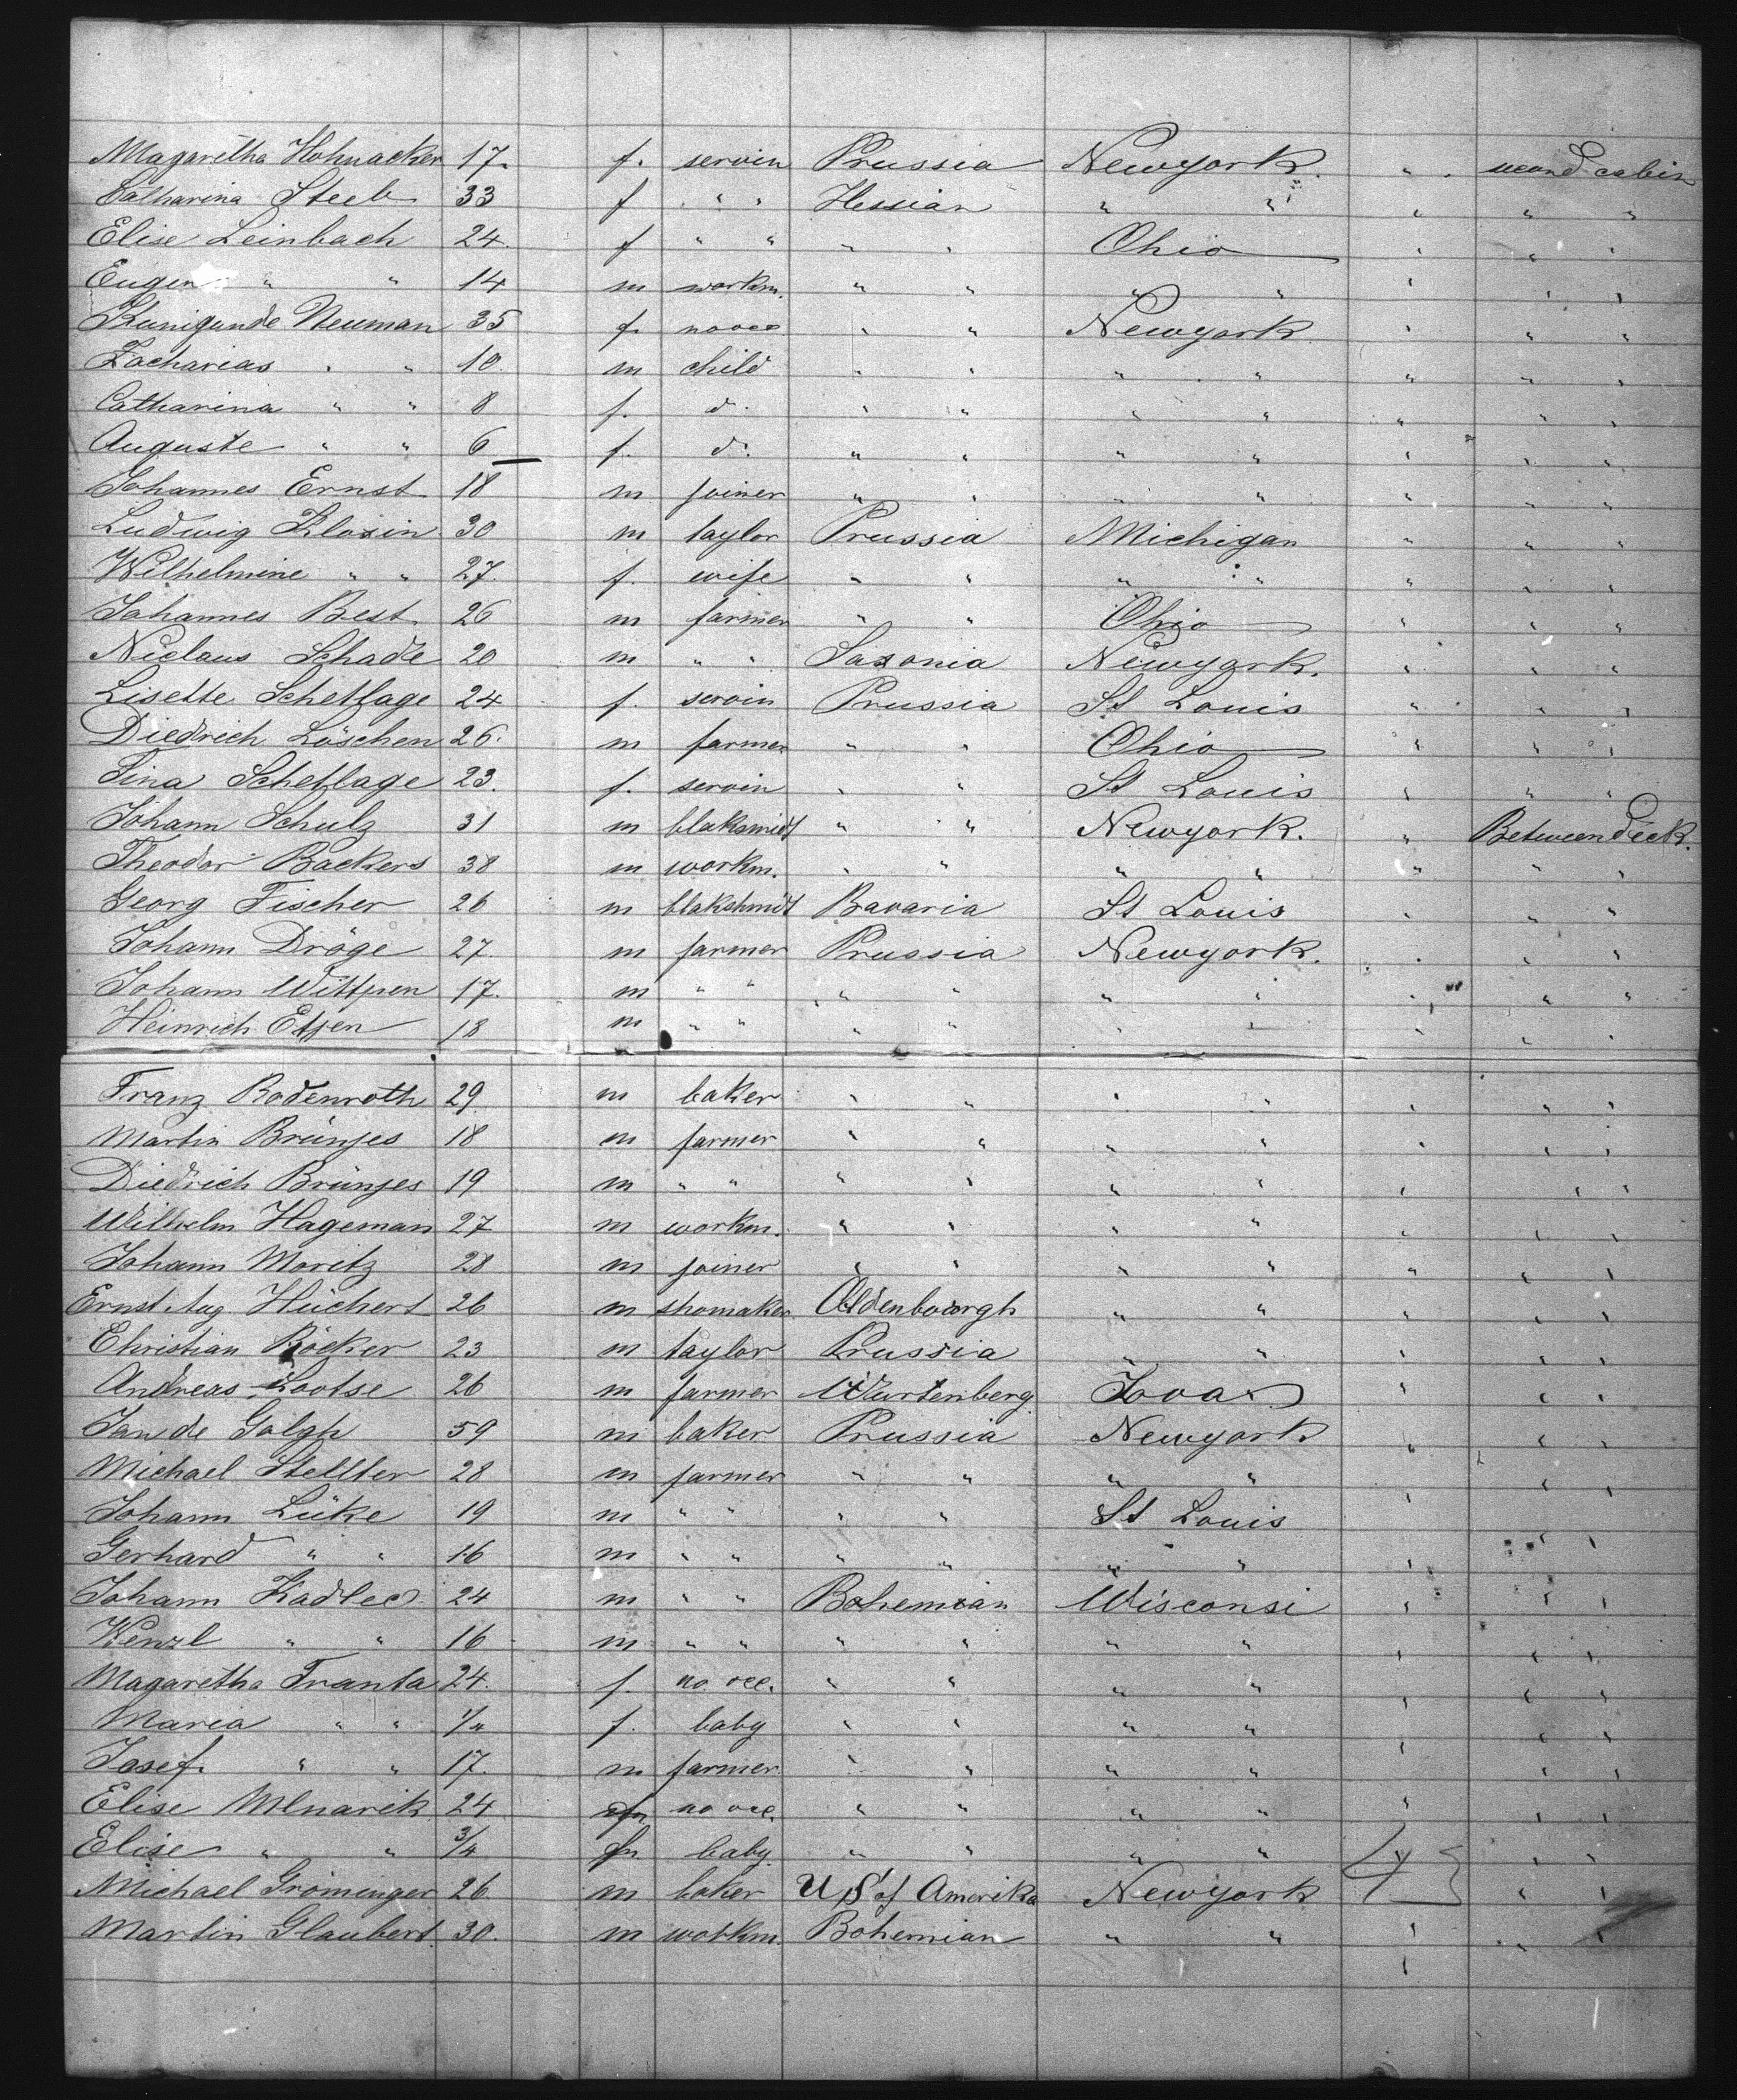 Magaretha Hohnacker 17. f. servin Prussia Newyork. " . second cabin
Catharina Steeb 33 f " " Hessian " " " " "
Elise Leinbach 24. f " " " " Ohio " " "
Eugen " " 14 m workm. " " " " " " "
Kunigunde Neuman 35 f. no occ " " Newyork " " "
Zacharias " " 10. m child " " " " " " "
Catharina " " 8 f. d. " " " " " " "
Auguste " " 6 f. d. " " " " " " "
Johannes Ernst 18 m joiner " " " " " " "
Ludwig Kloxin 30 m taylor Prussia Michigan " " "
Wilhelmine " " 27. f. wife " " " " " " "
Johannes Best 26 m farmer " " Ohio " " "
Niclaus Schade 20 m " " Saxonia Newyork. " " "
Lisette Schetlage 24 f. servin Prussia St Louis " " "
Diedrich Löschen 26. m farmer " " Ohio " " "
Tina Schetlage 23. f. servin " " St Louis " " "
Johann Schulz 31 m blaksmidt " " Newyork. " Betweendeck.
Theodor Backers 38 m workm. " " " " " " "
Georg Fischer 26 m blakshmidt Bavaria St Louis " " "
Johann Dröge 27. m farmer Prussia Newyork. " " "
Johann Wittpen 17. m " " " " " " " " "
Heinrich Etjen 18 m " " " " " " " " "
Franz Rodenroth 29. m baker " " " " " " "
Martin Brünjes 18 m farmer " " " " " " "
Diedrich Brünjes 19 m " " " " " " " " "
Wilhelm Hageman 27 m workm. " " " " " " "
Johann Moritz 28 m joiner " " " " " " "
Ernst Aug Hüchert 26 m shomaker Oldenbourgh " " " " "
Christian Röcker 23 m taylor Prussia " " " " "
Andreas Lootse 26 m farmer Wurtenberg Iova " " "
Jan de Golgh 59 m baker Prussia Newyork " " "
Michael Stellter 28 m farmer " " " " " " "
Johann Lüke 19 m " " " " St Louis " " "
Gerhard " " 16 m " " " " " " " " "
Johann Kadlec 24 m " " Bohemian Wisconsi " " "
Wenzl " " 16 m " " " " " " " " "
Magaretha Franta 24. f. no occ. " " " " " " "
Maria " " 1/4 f. baby " " " " " " "
Josef. " " 17. m farmer " " " " " " "
Elise Mlnarik 24 f no occ. " " " " " " "
Elise " " 3/4 f baby " " " " " "
Michael Grömenger 26 m baker U S of Amerika Newyork 4 " "
Martin Glaubert 30. m workm. Bohemian " " " " "